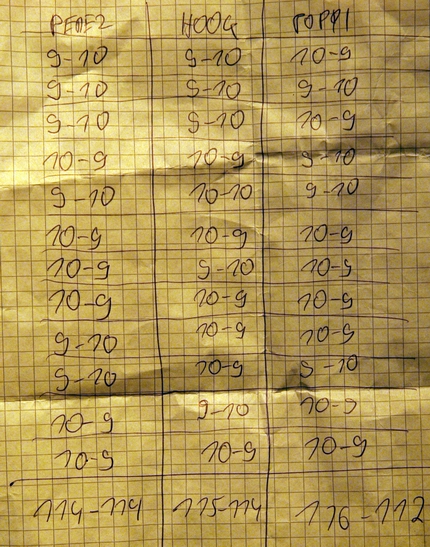 HOOG TOPPI
9-10 9-10 10-9
9-10 9-10 9-10
9-10 9-10 10-9
10-9 10-9 9-10
9-10 10-10 9-10
10-9 10-9 10-9
10-9 9-10 10-9
10-9 10-9 10-9
9-10 10-9 10-9
9-10 10-9 9-10
10-9 9-10 10-9
10-9 10-9 10-9
114-114 115-114 116-112